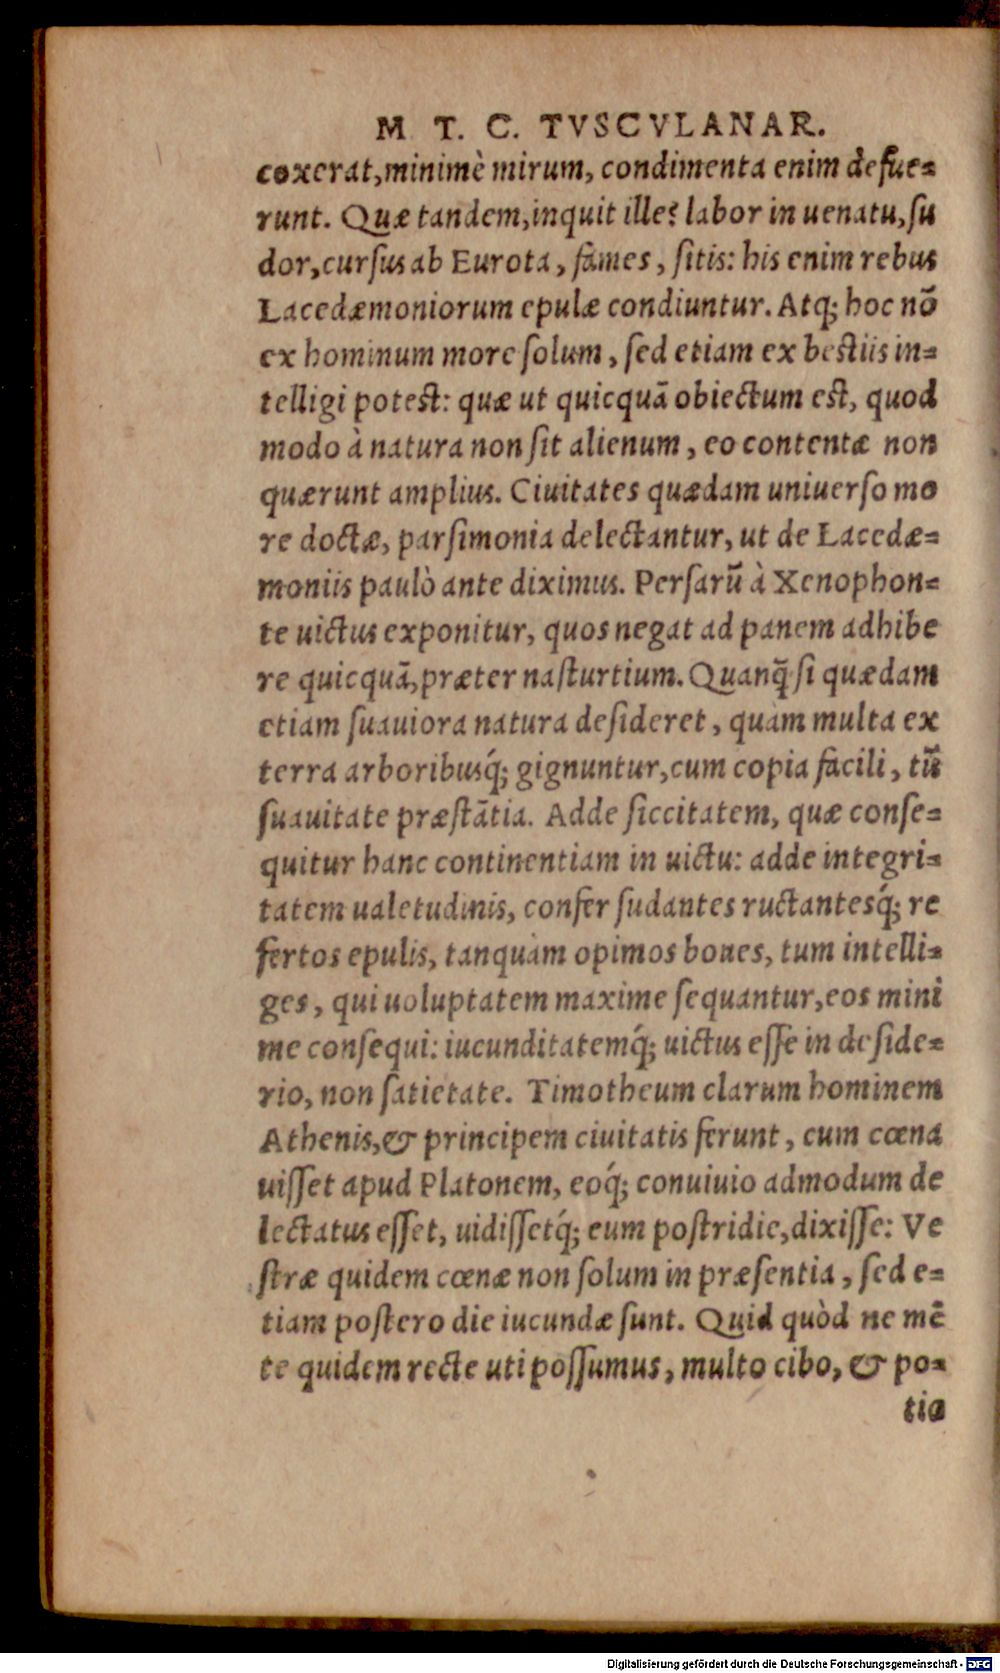 M T. C. TVSCVLANAR.
coxerat, minimè mirum, condimenta enim defue-
runt. Quæ tandem, inquit ille? labor in uenatu, su
dor, cursus ab Eurota, fames, sitis: his enim rebus
Lacedæmoniorum epulæ condiuntur. Atq; hoc nō
ex hominum more solum, sed etiam ex bestiis in-
telligi potest: quæ ut quicquā obiectum est, quod
modo à natura non sit alienum, eo contentæ non
quærunt amplius. Ciuitates quædam uniuerso mo
re doctæ, parsimonia delectantur, ut de Lacedæ-
moniis paulò ante diximus. Persarū à Xenophon-
te uictus exponitur, quos negat ad panem adhibe
re quicquā, præter nasturtium. Quanq̄ si quædam
etiam suauiora natura desideret, quàm multa ex
terra arboribusq́; gignuntur, cum copia facili, tū
suauitate præstātia. Adde siccitatem, quæ conse-
quitur hanc continentiam in uictu: adde integri-
tatem ualetudinis, confer sudantes ructantesq́; re
fertos epulis, tanquàm opimos boues, tum intelli-
ges, qui uoluptatem maxime sequantur, eos mini
me consequi: iucunditatemq́; uictus esse in deside-
rio, non satietate. Timotheum clarum hominem
Athenis, & principem ciuitatis ferunt, cum cœna
uisset apud Platonem, eoq́; conuiuio admodum de
lectatus esset, uidissetq́; eum postridie, dixisse: Ve
stræ quidem cœnæ non solum in præsentia, sed e-
tiam postero die iucundæ sunt. Quid quòd ne mē
te quidem recte uti possumus, multo cibo, & po-
tio
Digitalisierung gefördert durch die Deutsche Forschungsgemeinschaft - DFG